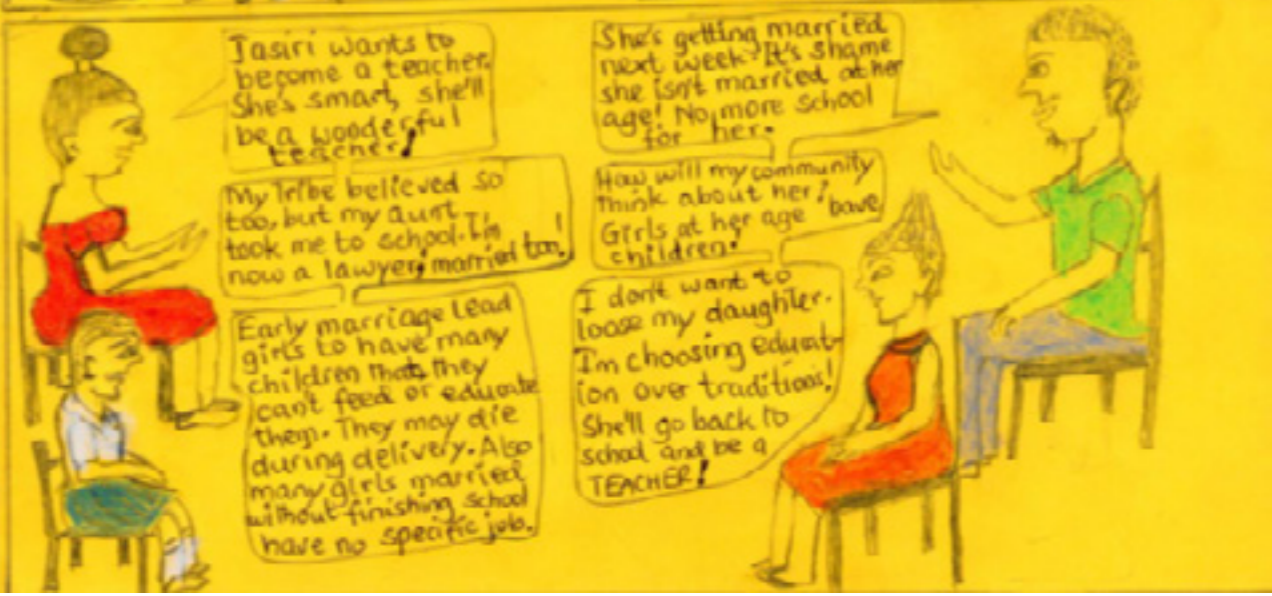 Jasiri wants to
become a teacher.
She's smart, she'll
be a wooderful
teacher!
She's getting married
next week. It's shame
she isn't married at her
age! No more school
for her.
My Tribe believed so
too, but my aunt
took me to school. I'm
now a lawyer, married too!
How will my community
think about her?
Girls at her age have
children.
Early marriage lead
girls to have many
children that they
can't feed or educate
them. They may die
during delivery. Also
many girls married
without finishing school
have no specific job.
I don't want to
loose my daughter.
I'm choosing educat-
ion over traditions!
She'll go back to
school and be a
TEACHER!